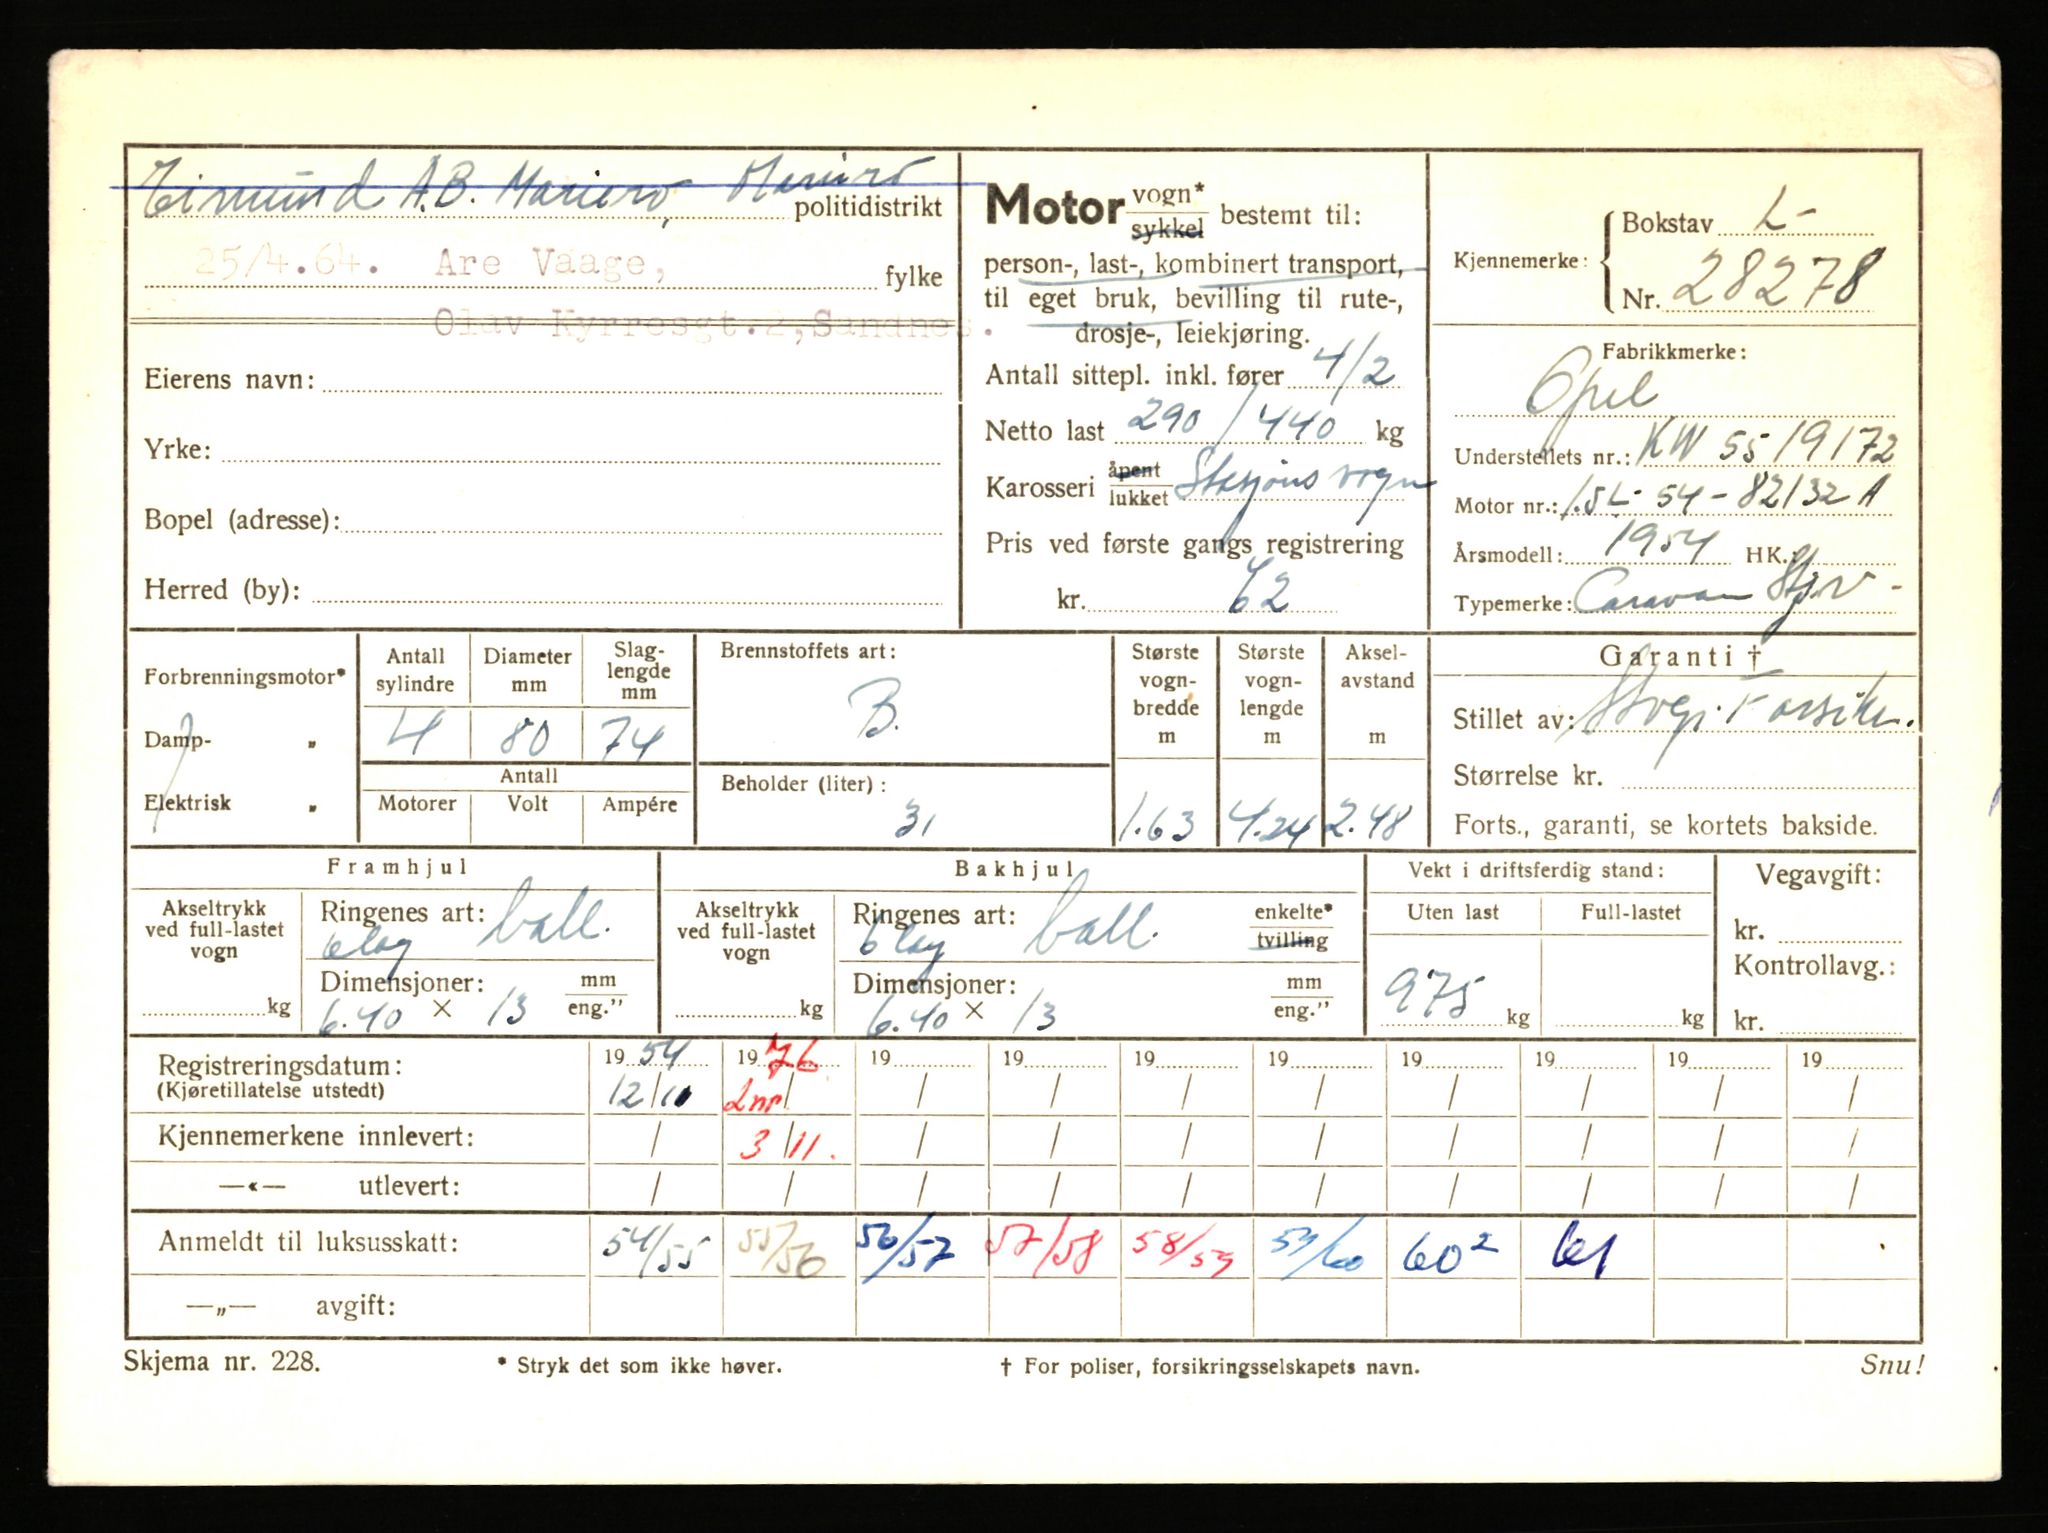 Eimund A.B. Mariero, Mariero politidistrikt
25/4.64. Are Vaage,
fylke
Olav Kyrresgt.2, Sandnes.
Eierens navn:
Yrke:
Bopel (adresse):
Herred (by):
Motor vogn* sykkel bestemt til:
person-, last-, kombinert transport,
til eget bruk, bevilling til rute-,
drosje-, leiekjøring.
Antall sittepl. inkl. fører 4/2
Netto last 290/440 kg
Karosseri åpent lukket Stasjonsvogn
Pris ved første gangs registrering
kr. 62
Kjennemerke: Bokstav L-
Nr. 28278
Fabrikkmerke:
Opel
Understellets nr.: KW 5519172
Motor nr.: 1.5L-54-82132 A
Årsmodell: 1954 HK.:
Typemerke: Caravan Stj.v-
Forbrenningsmotor*
Damp- „
Elektrisk „
Antall sylindre Diameter mm Slag-lengde mm
4 80 74
Antall
Motorer Volt Ampére
Brennstoffets art:
B.
Beholder (liter):
31
Største vogn-bredde m Største vogn-lengde m Aksel-avstand m
1.63 4.24 2.48
Garanti †
Stillet av: Forsikr.
Størrelse kr.
Forts., garanti, se kortets bakside.
Framhjul
Akseltrykk ved full-lastet vogn kg
Ringenes art: ball.
6 lag
Dimensjoner: mm eng.”
6.40 × 13
Bakhjul
Akseltrykk ved full-lastet vogn kg
Ringenes art: ball. enkelte* tvilling
6 lag
Dimensjoner: mm eng.”
6.40 × 13
Vekt i driftsferdig stand:
Uten last Full-lastet
975 kg kg
Vegavgift:
kr.
Kontrollavg.:
kr.
Registreringsdatum: 19 54 19 76 19 19 19 19 19 19 19 19
(Kjøretillatelse utstedt) 12/10 Lnr / / / / / / / / /
Kjennemerkene innlevert: / 3/11. / / / / / / / /
—«— utlevert: / / / / / / / / / /
Anmeldt til luksusskatt: 54/55 55/56 56/57 57/58 58/59 59/60 60² 61
—„— avgift:
Skjema nr. 228. * Stryk det som ikke høver. † For poliser, forsikringsselskapets navn. Snu!